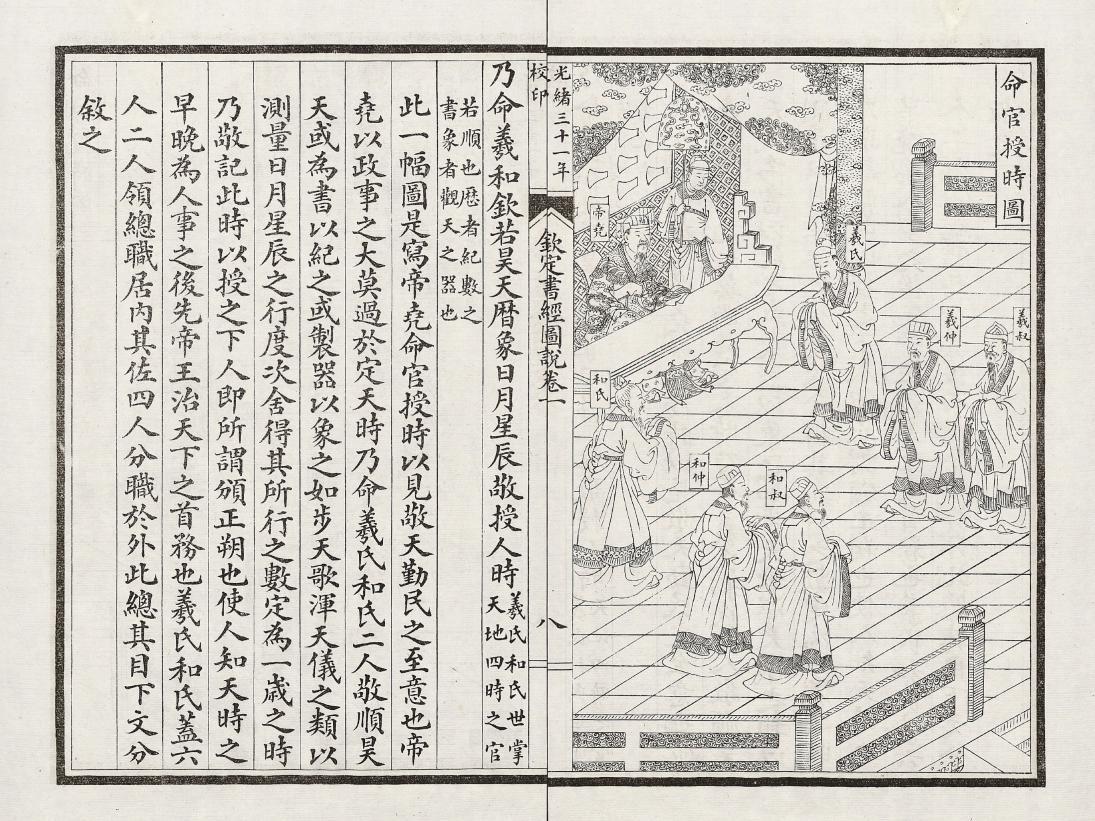 命官授時圖
羲叔
羲仲
羲氏
帝堯
和叔
和仲
和氏
光緒三十一年
校印
欽定書經圖說卷一
八
乃命羲和欽若昊天曆象日月星辰敬授人時羲氏和氏世掌
天地四時之官
若順也厯者紀數之
書象者觀天之器也
此一幅圖是寫帝堯命官授時以見敬天勤民之至意也帝
堯以政事之大莫過於定天時乃命羲氏和氏二人敬順昊
天或為書以紀之或製器以象之如步天歌渾天儀之類以
測量日月星辰之行度次舍得其所行之數定為一歲之時
乃敬記此時以授之下人即所謂頒正朔也使人知天時之
早晚為人事之後先帝王治天下之首務也羲氏和氏蓋六
人二人領總職居內其佐四人分職於外此總其目下文分
敘之